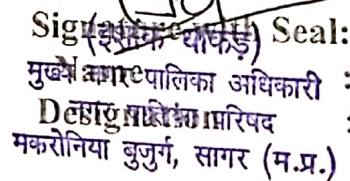 Signature with Seal:
(इशांक धाकड़)
Name :
मुख्य नगर पालिका अधिकारी
Designation :
नगर पालिका परिषद
मकरोनिया बुजुर्ग, सागर (म.प्र.)